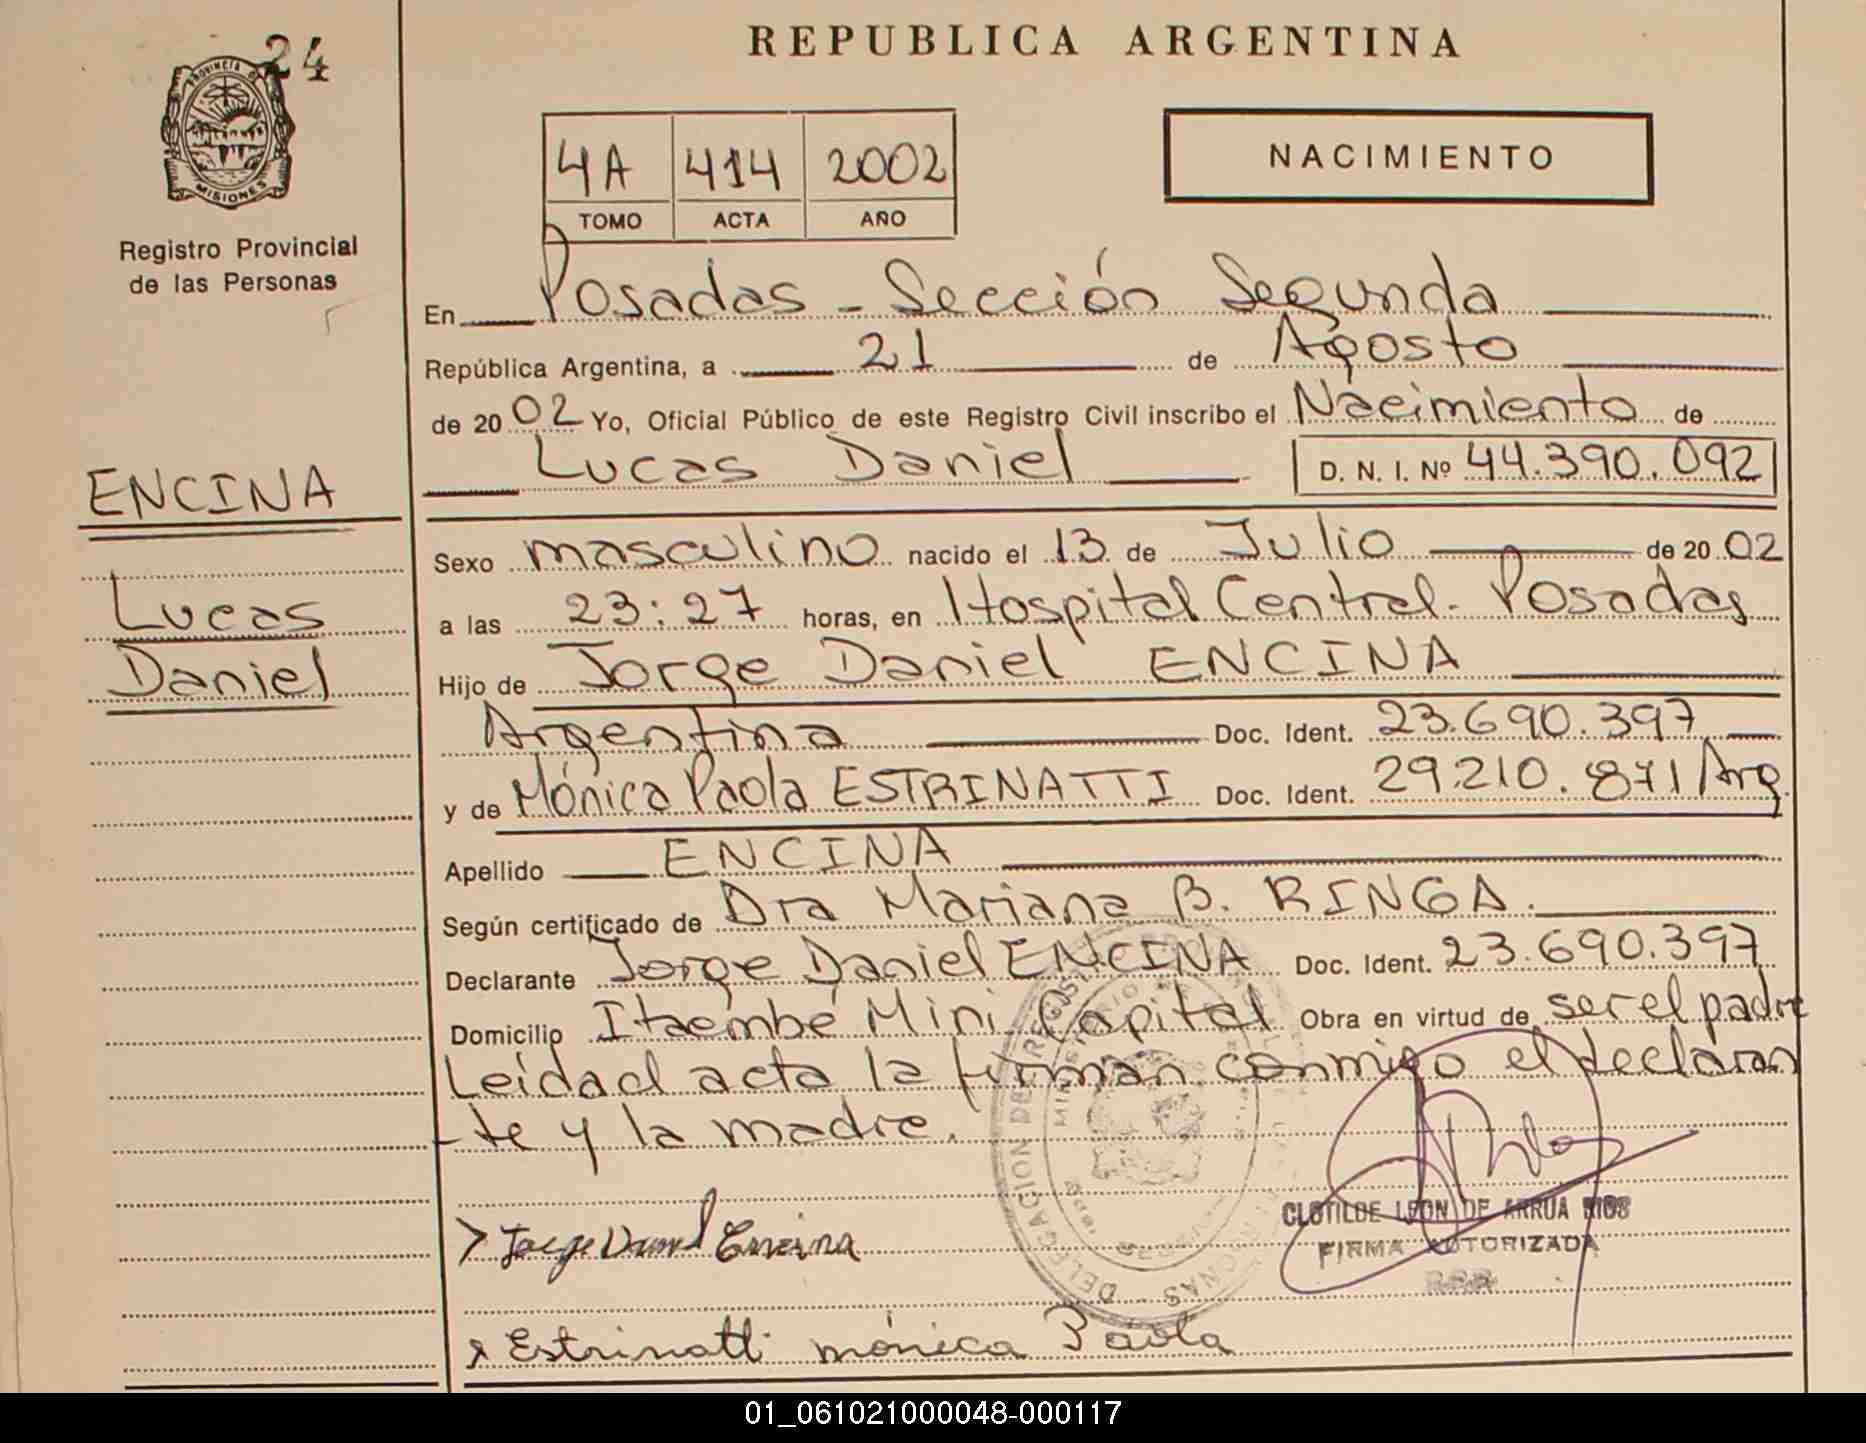 24
REPUBLICA ARGENTINA
PROVINCIA DE
MISIONES
Registro Provincial
de las Personas
4A 414 2002
TOMO ACTA AÑO
NACIMIENTO
En Posadas - Sección Segunda
República Argentina, a 21 de Agosto
de 20 02 Yo, Oficial Público de este Registro Civil inscribo el Nacimiento de
Lucas Daniel D. N. I. Nº 44.390.092
ENCINA
Lucas
Daniel
Sexo masculino nacido el 13 de Julio de 20 02
a las 23:27 horas, en Hospital Central - Posadas
Hijo de Jorge Daniel ENCINA
Argentina Doc. Ident. 23.690.397
y de Mónica Paola ESTRINATTI Doc. Ident. 29.210.871 Arg.
Apellido ENCINA
Según certificado de Dra Mariana B. RINGA.
Declarante Jorge Daniel ENCINA Doc. Ident. 23.690.397
Domicilio Itaembé Mini Capital Obra en virtud de ser el padre
Leídad acta la firman conmigo el declaran
-te y la madre.
DELEGACION DE REGIST
CLOTILDE LEON DE ARRUA RIOS
FIRMA AUTORIZADA
R.P.P.
Jorge Daniel Encina
x Estrinatti mónica Paola
01_061021000048-000117